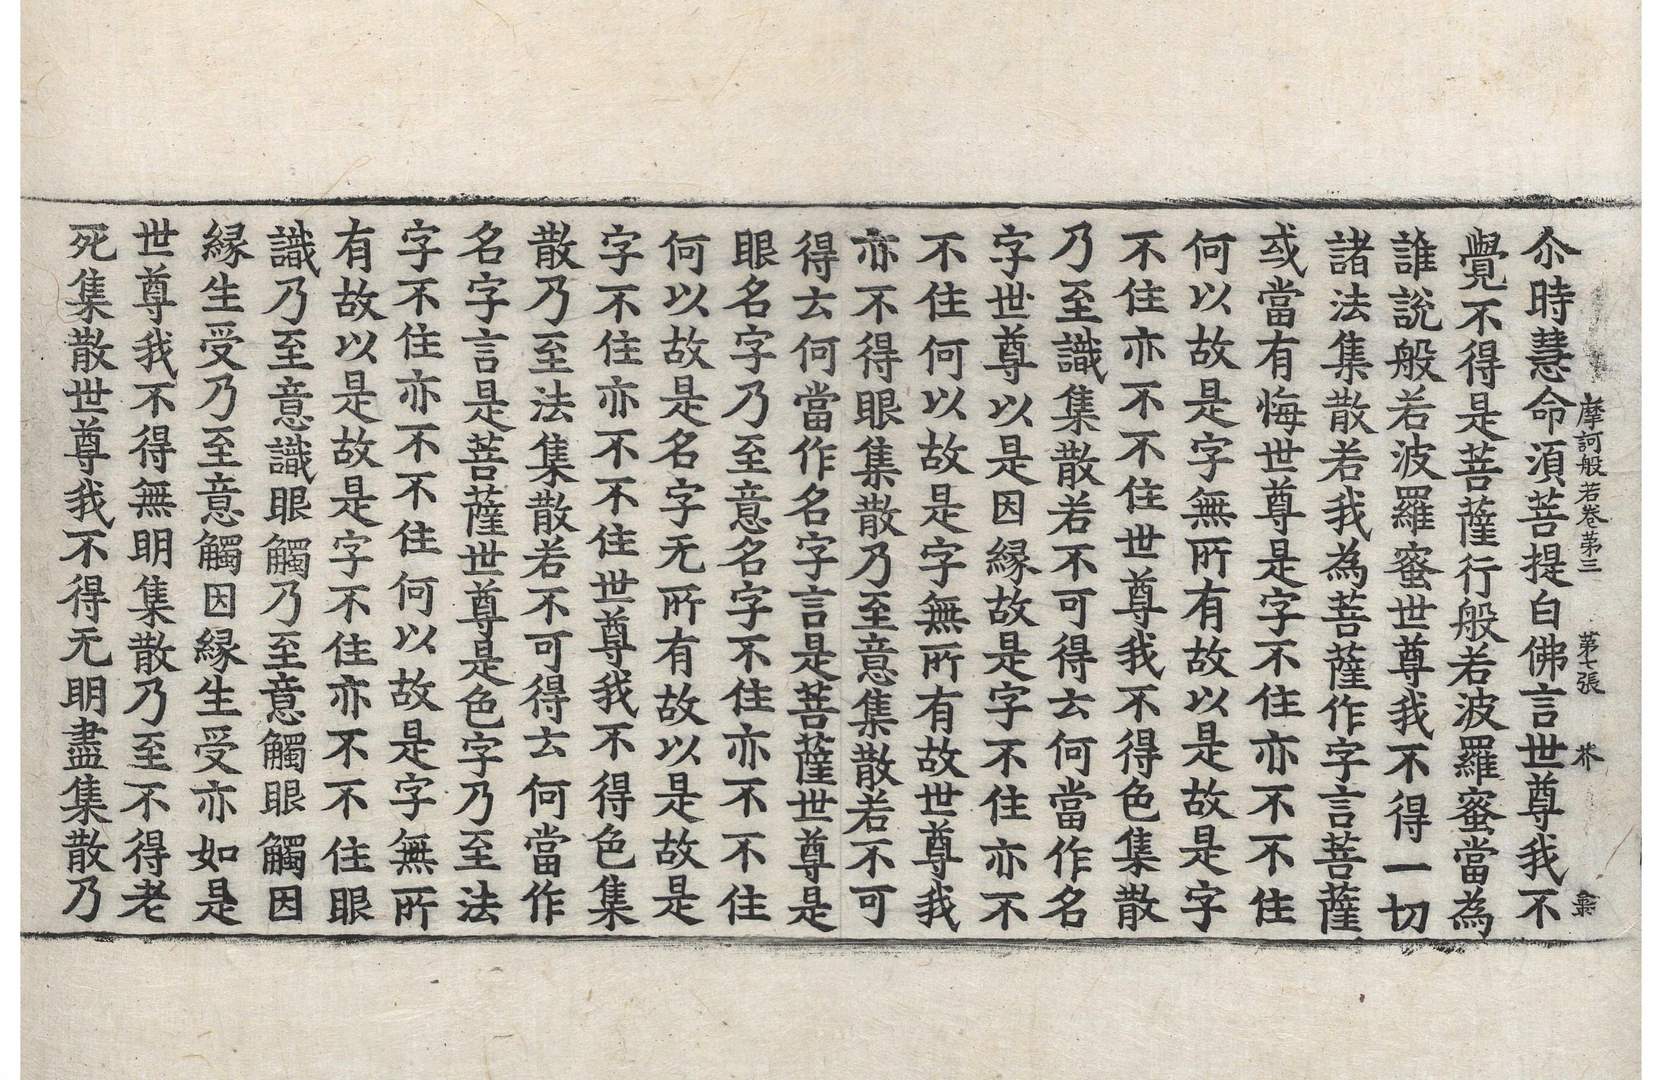 摩訶般若卷第三 第七張 芥
尒時慧命湏菩提白佛言世尊我不
覺不得是菩薩行般若波羅蜜當為
誰說般若波羅蜜世尊我不得一切
諸法集散若我為菩薩作字言菩薩
或當有悔世尊是字不住亦不不住
何以故是字無所有故以是故是字
不住亦不不住世尊我不得色集散
乃至識集散若不可得云何當作名
字世尊以是因緣故是字不住亦不
不住何以故是字無所有故世尊我
亦不得眼集散乃至意集散若不可
得云何當作名字言是菩薩世尊是
眼名字乃至意名字不住亦不不住
何以故是名字无所有故以是故是
字不住亦不不住世尊我不得色集
散乃至法集散若不可得云何當作
名字言是菩薩世尊是色字乃至法
字不住亦不不住何以故是字無所
有故以是故是字不住亦不不住眼
識乃至意識眼觸乃至意觸眼觸因
緣生受乃至意觸因緣生受亦如是
世尊我不得無明集散乃至不得老
死集散世尊我不得无明盡集散乃